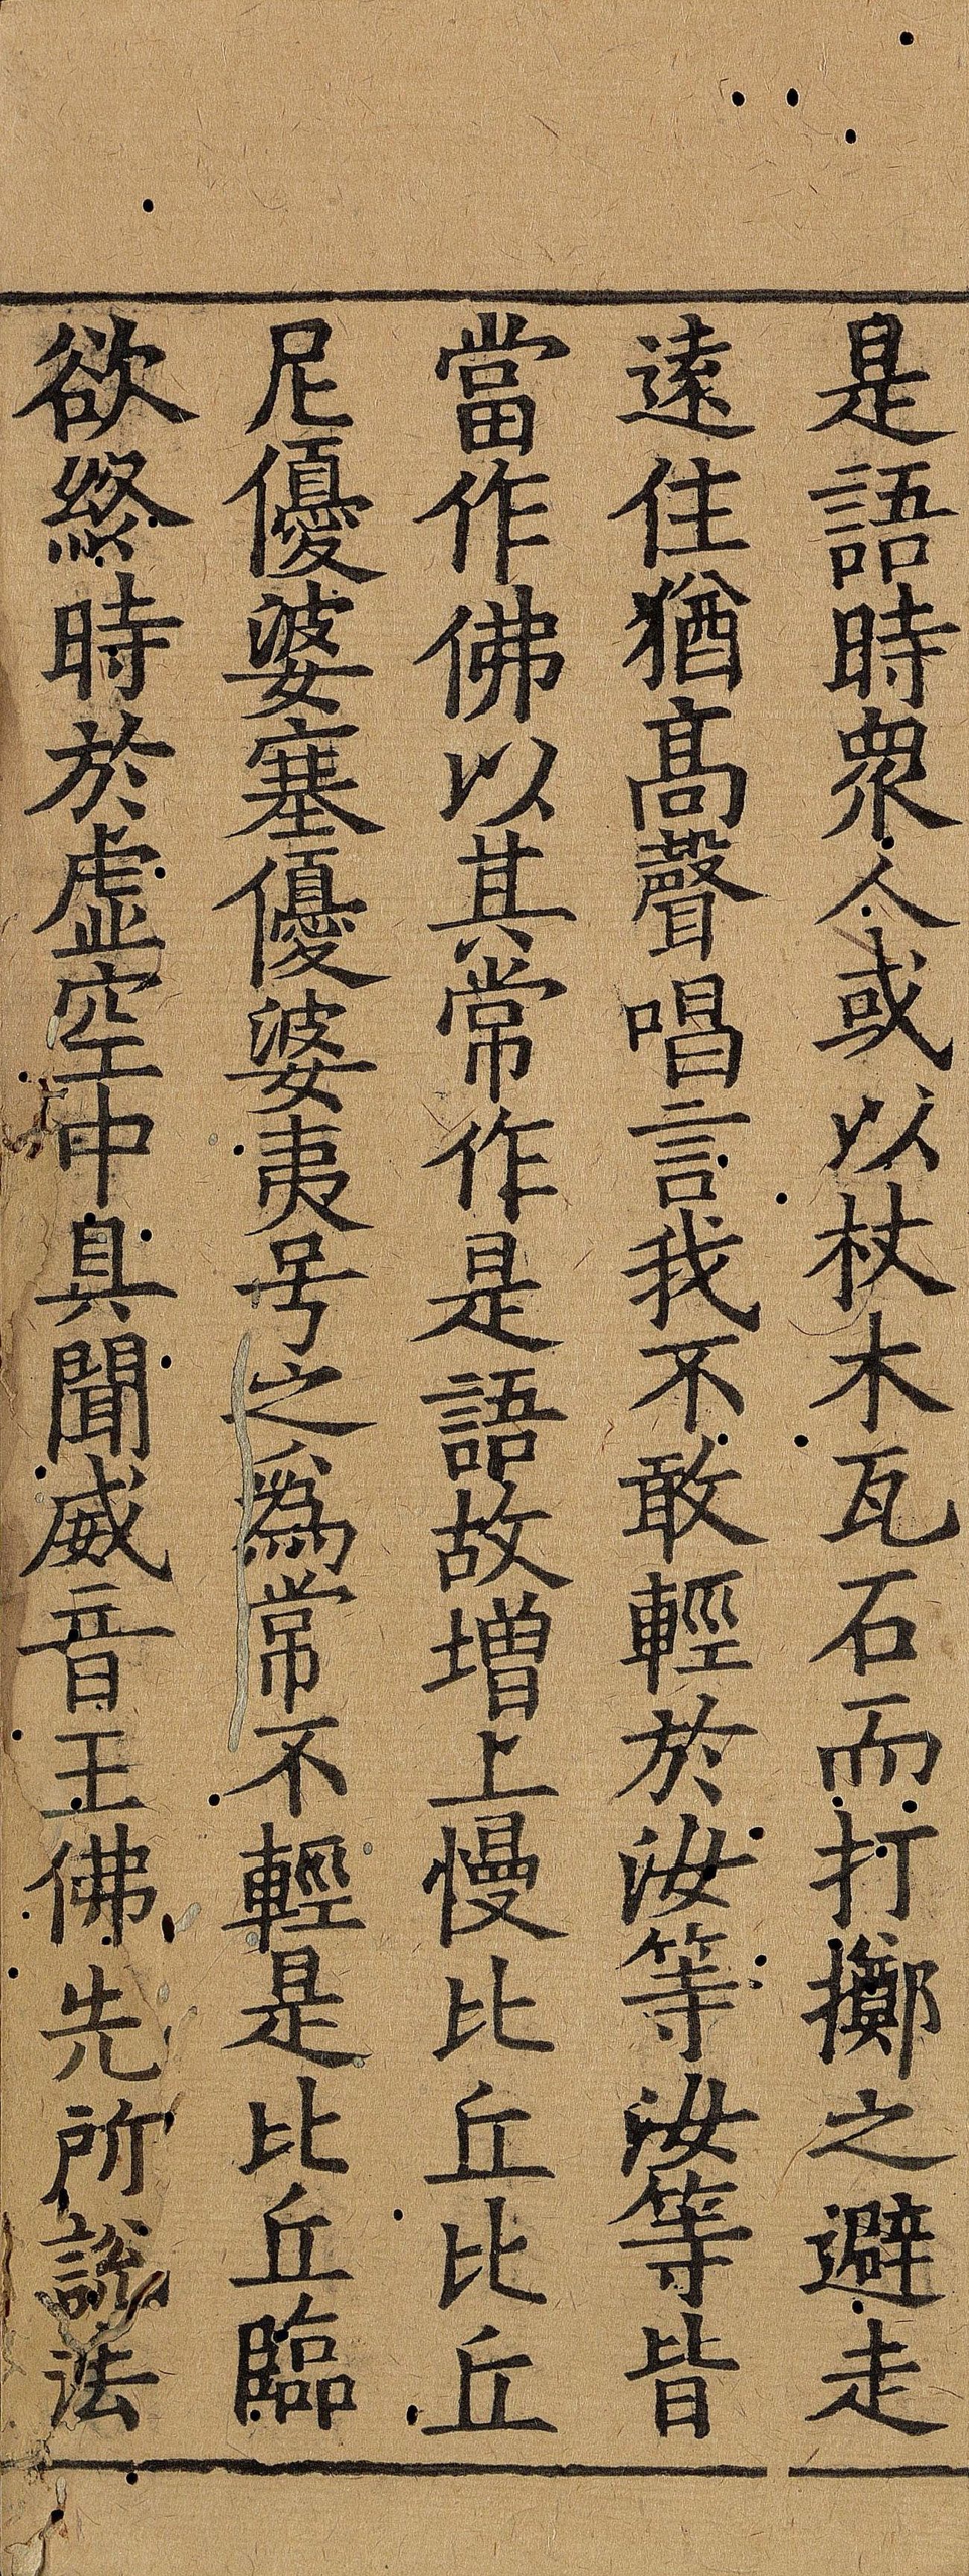 是語時衆人或以杖木瓦石而打擲之避走
逺住猶髙聲唱言我不敢輕於汝等汝等皆
當作佛以其常作是語故增上慢比丘比丘
尼優婆塞優婆夷号之爲常不輕是比丘臨
欲終時於虛空中具聞威音王佛先所說法